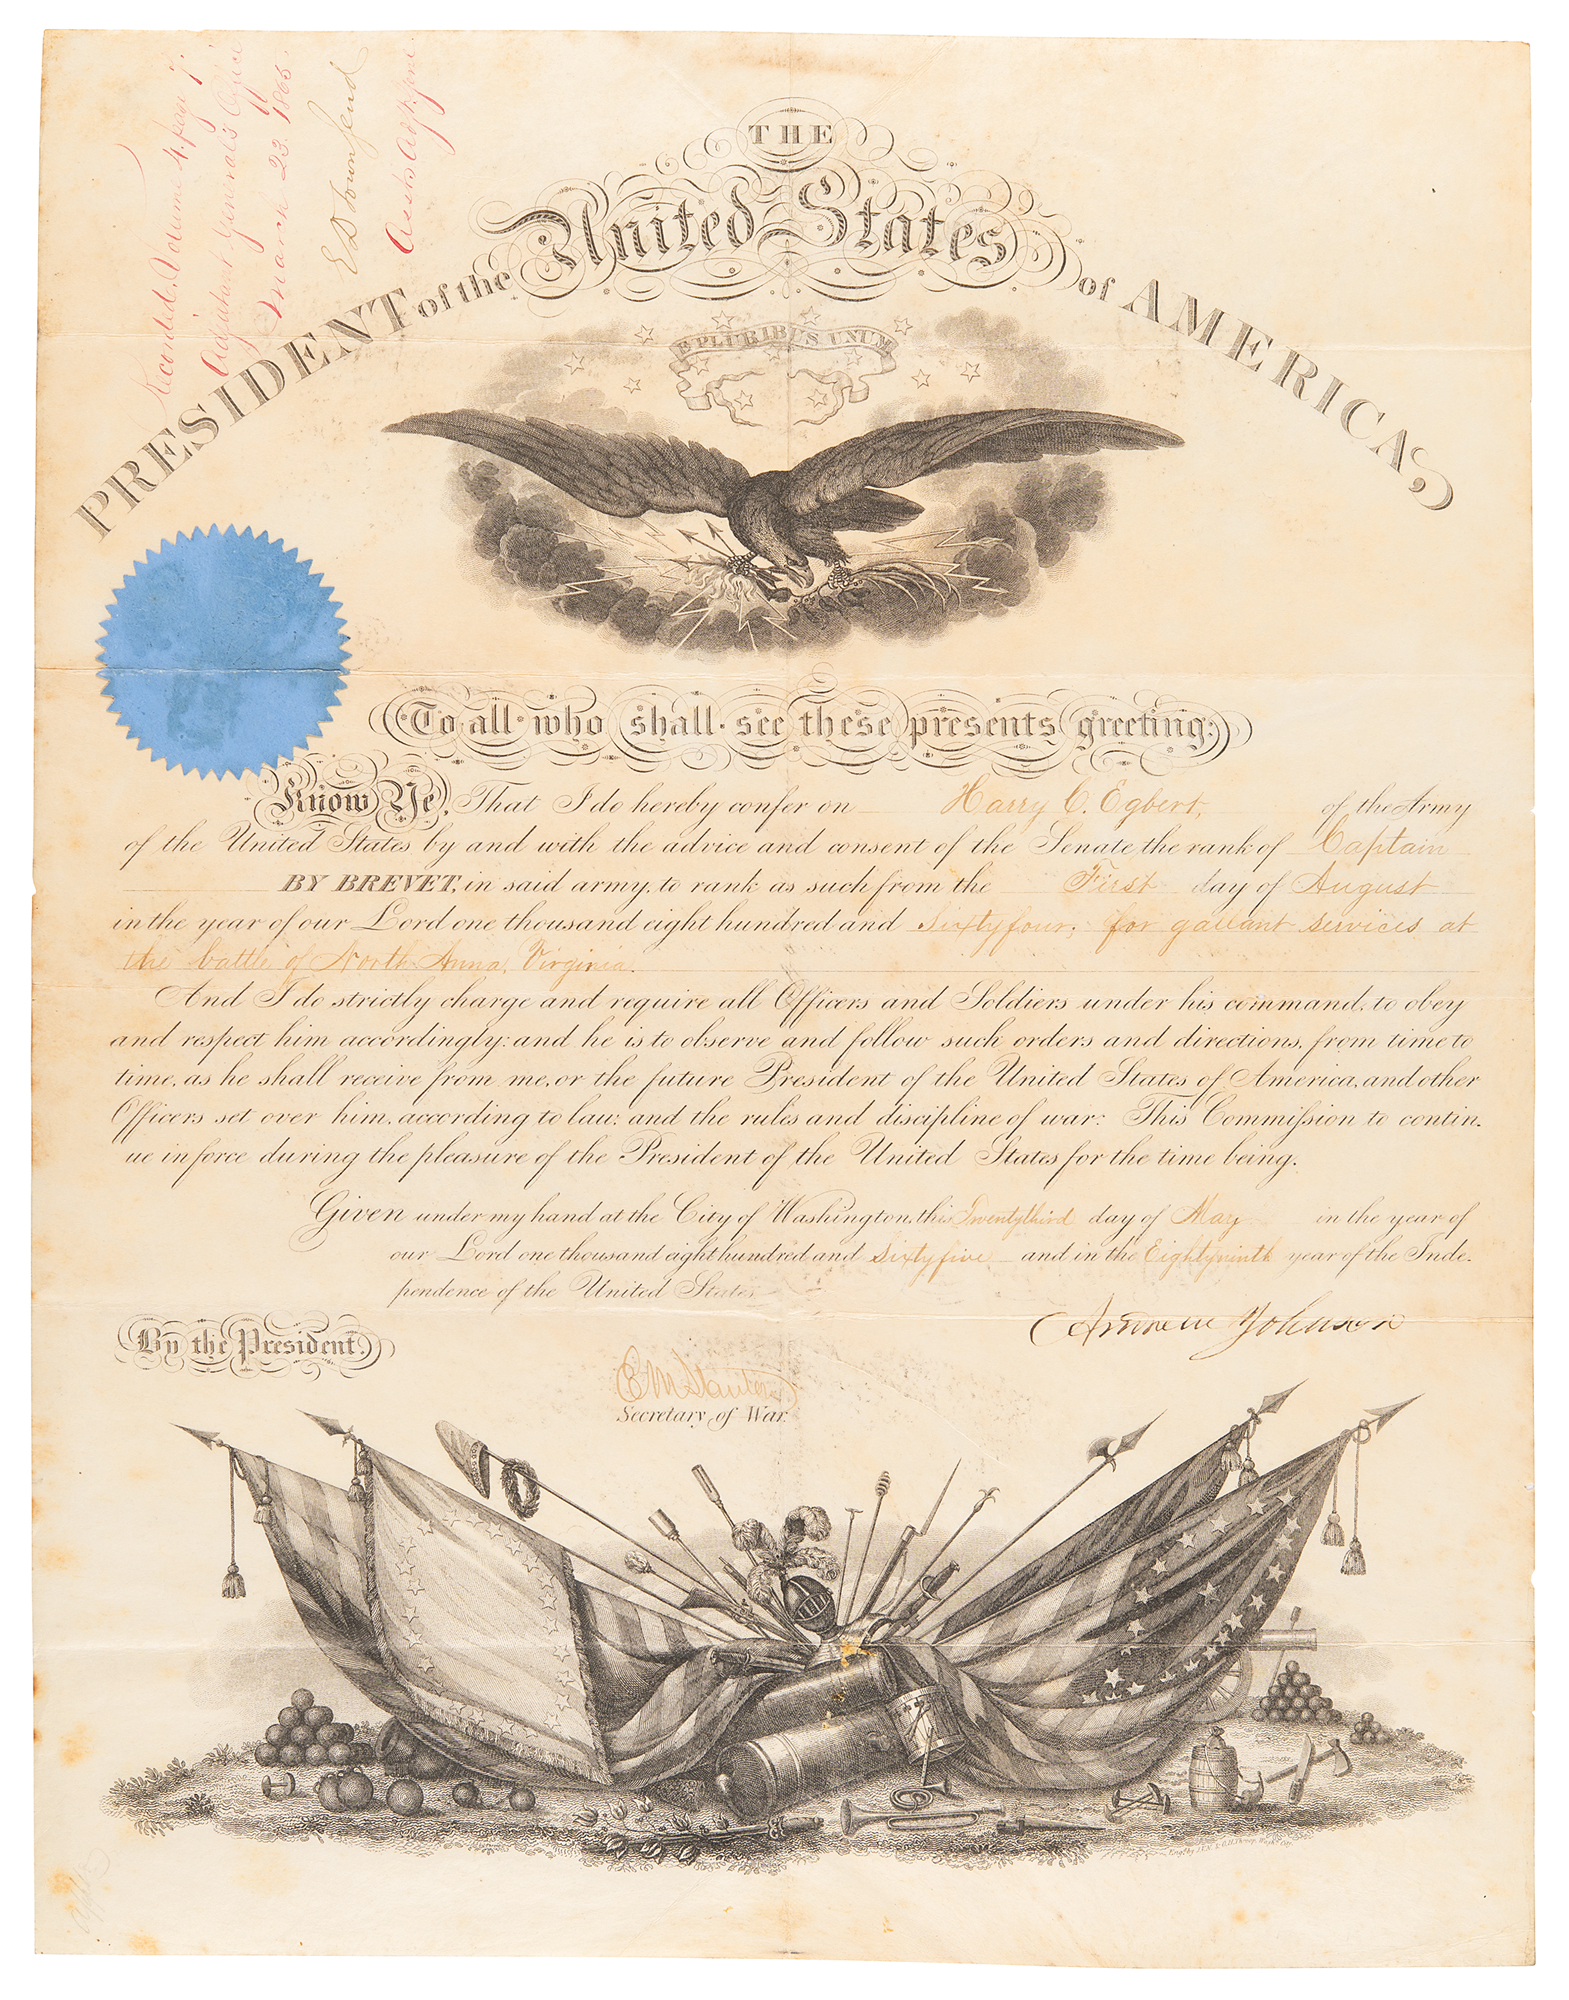 Recorded, Volume 4. page 7.
Adjutant General's Office
March 23. 1866
E D Townsend
Asst. Adjt. Genl.
THE
PRESIDENT of the United States of AMERICA,
E PLURIBUS UNUM
To all who shall see these presents greeting:
Know Ye, That I do hereby confer on Harry C. Egbert, of the Army
of the United States by and with the advice and consent of the Senate, the rank of Captain
BY BREVET, in said army, to rank as such from the First day of August
in the year of our Lord one thousand eight hundred and Sixtyfour; for gallant services at
the battle of North Anna, Virginia.
And I do strictly charge and require all Officers and Soldiers under his command, to obey
and respect him accordingly: and he is to observe and follow such orders and directions, from time to
time, as he shall receive from me, or the future President of the United States of America, and other
Officers set over him, according to law; and the rules and discipline of war: This Commission to contin-
ue in force during the pleasure of the President of the United States for the time being.
Given under my hand at the City of Washington, this Twentythird day of May in the year of
our Lord one thousand eight hundred and Sixtyfive and in the Eightyninth year of the Inde-
pendence of the United States
Andrew Johnson
By the President.
E M Stanton
Secretary of War.